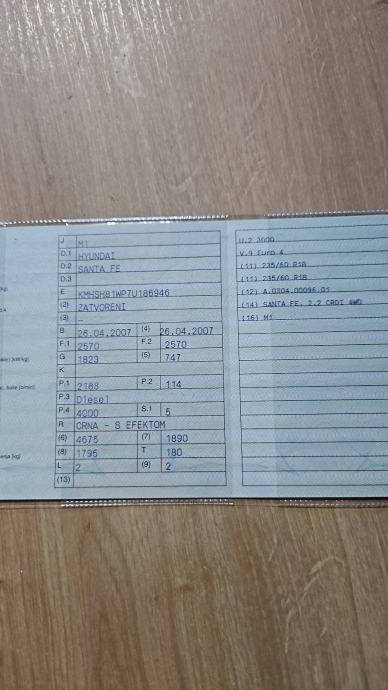 J M1
D.1 HYUNDAI
D.2 SANTA FE
D.3
E KMHSH81WP7U186946
(2) ZATVORENI
(3) –
B 26.04.2007 (4) 26.04.2007
F.1 2570 F.2 2570
G 1823 (5) 747
K
P.1 2188 P.2 114
P.3 Diesel
P.4 4000 S.1 5
R CRNA - S EFEKTOM
(6) 4675 (7) 1890
(8) 1795 T 180
L 2 (9) 2
(13)
U.2 3000
V.9 Euro 4
(11) 235/60 R18
(11) 235/60 R18
(12) A.0304.00096.01
(14) SANTA FE, 2.2 CRDI 4WD
(16) M1